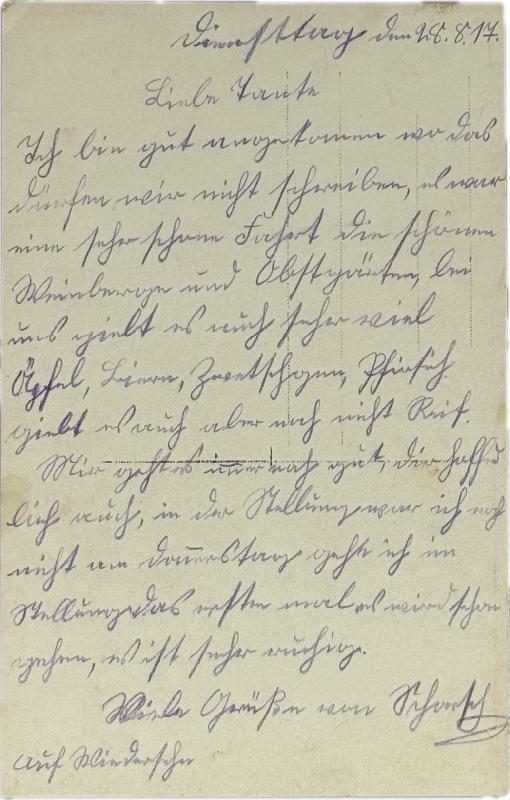 Diensttag den 28. 8. 17.
Liebe Tante
Ich bin gut angekomen wo das
dürfen wir nicht schreiben, es war
eine sehr schöne Fahrt die schönen
Weinberge und Obstgärten, bei
uns giebt es auch sehr viel
Äpfel, Biern, Zwetschgen, Pfirsich
giebt es auch aber noch nicht Reif.
Mir geht es im̅er noch gut, dir hoffent
lich auch, in der Stellung war ich noch
nicht am Don̅erstag gehe ich in
Stellung das erste mal es wird schon
gehen, es ist sehr ruhig.
Viele Grüße von Schorsch
Auf Wiedersehn